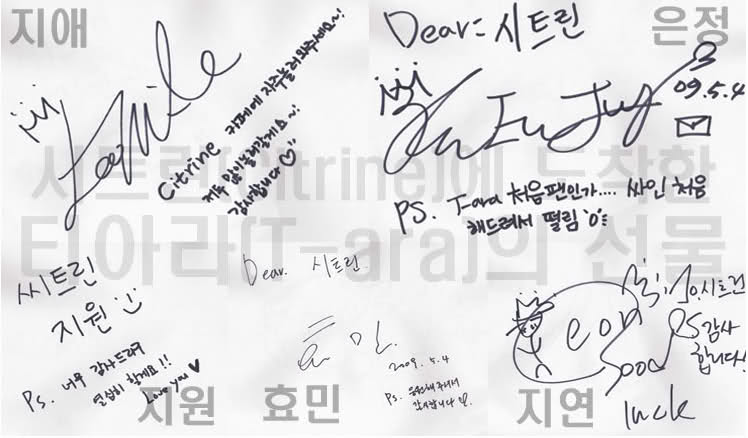 지애
Citrine 카페에 자주 놀러와주세요~!
저두 많이 놀러갈게요~!
감사합니다♡
Dear: 시트린
은정
09.5.4
PS. T-ara 처음팬인가.... 싸인 처음
해드려서 떨림 'o'
시트린(Citrine)에 도착한
티아라(T-ara)의 선물
씨트린
지원
Ps. 너무 감사드리구
열심히 할게요!!
Love you ♥
지원
Dear. 시트린.
효민
2009. 5. 4
Ps. 응원해주셔서
감사합니다
효민
감사
합니다!
Good
luck
지연